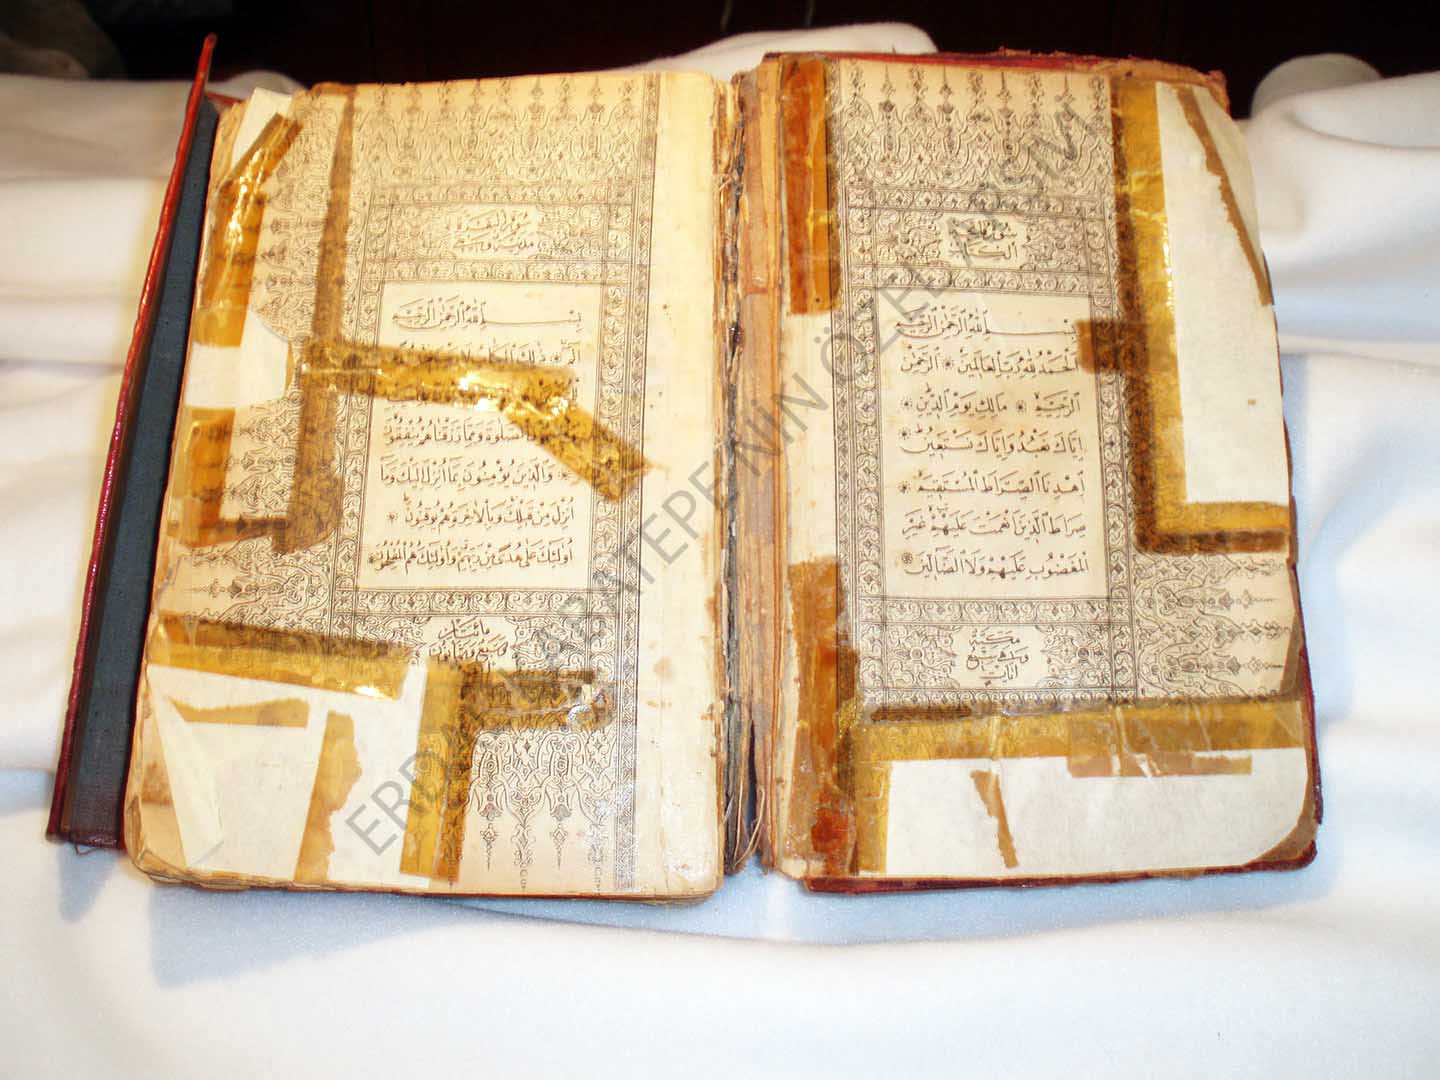 سُورَةُ فَاتِحَةِ
الْكِتَابِ
بِسْمِ اللّٰهِ الرَّحْمٰنِ الرَّحِيمِ
اَلْحَمْدُ لِلّٰهِ رَبِّ الْعَالَمِينَ ۞ اَلرَّحْمٰنِ
الرَّحِيمِ ۞ مَالِكِ يَوْمِ الدِّينِ ۞
اِيَّاكَ نَعْبُدُ وَاِيَّاكَ نَسْتَعِينُ ۞
اِهْدِنَا الصِّرَاطَ الْمُسْتَقِيمَ ۞
صِرَاطَ الَّذِينَ اَنْعَمْتَ عَلَيْهِمْ غَيْرِ
الْمَغْضُوبِ عَلَيْهِمْ وَلَا الضَّالِّينَ ۞
مكية
وهي سبع
آيات
سُورَةُ الْبَقَرَةِ
مدنية وهي
بِسْمِ اللّٰهِ الرَّحْمٰنِ الرَّحِيمِ
الٓمٓ ۞ ذٰلِكَ الْكِتَابُ
الصَّلٰوةَ وَمِمَّا رَزَقْنَاهُمْ يُنْفِقُونَ
۞ وَالَّذِينَ يُؤْمِنُونَ بِمَا اُنْزِلَ اِلَيْكَ وَمَا
اُنْزِلَ مِنْ قَبْلِكَ وَبِالْاٰخِرَةِ هُمْ يُوقِنُونَ ۞
اُولٰٓئِكَ عَلٰى هُدًى مِنْ رَبِّهِمْ وَاُولٰٓئِكَ هُمُ الْمُفْلِحُونَ ۞
مائتان
ERDAL KARATEPE'NİN ÖZEL ARŞİVİ